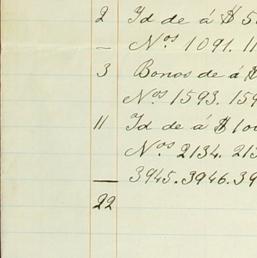 2 Id de á $ 5
— Nos 1091. 11
3 Bonos de á $
Nos 1593. 159
11 Id de á $ 100
Nos 2134. 213
3945. 3946. 39
22